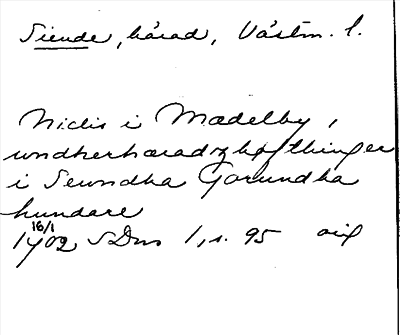 Siende, härad, Västm. l.
Niclis i Mædelby,
undherhæradzhøfthinger
i Sewndha Gorundha
hundare
16/1
1402 SDns 1, s. 95 orig